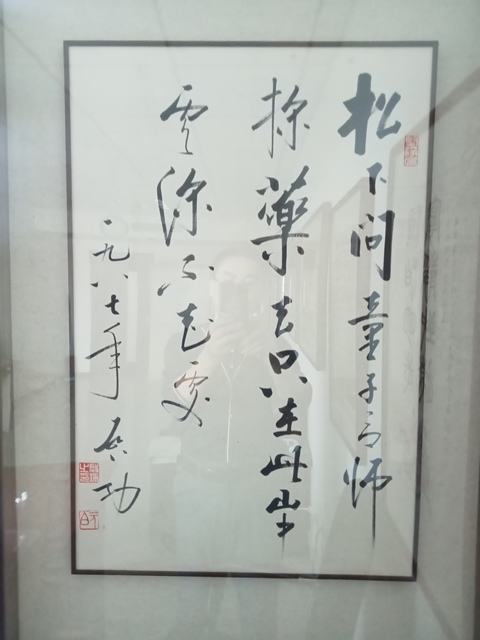 松下问童子言师
採藥去只在此山中
雲深不知處
一九八七年 启功